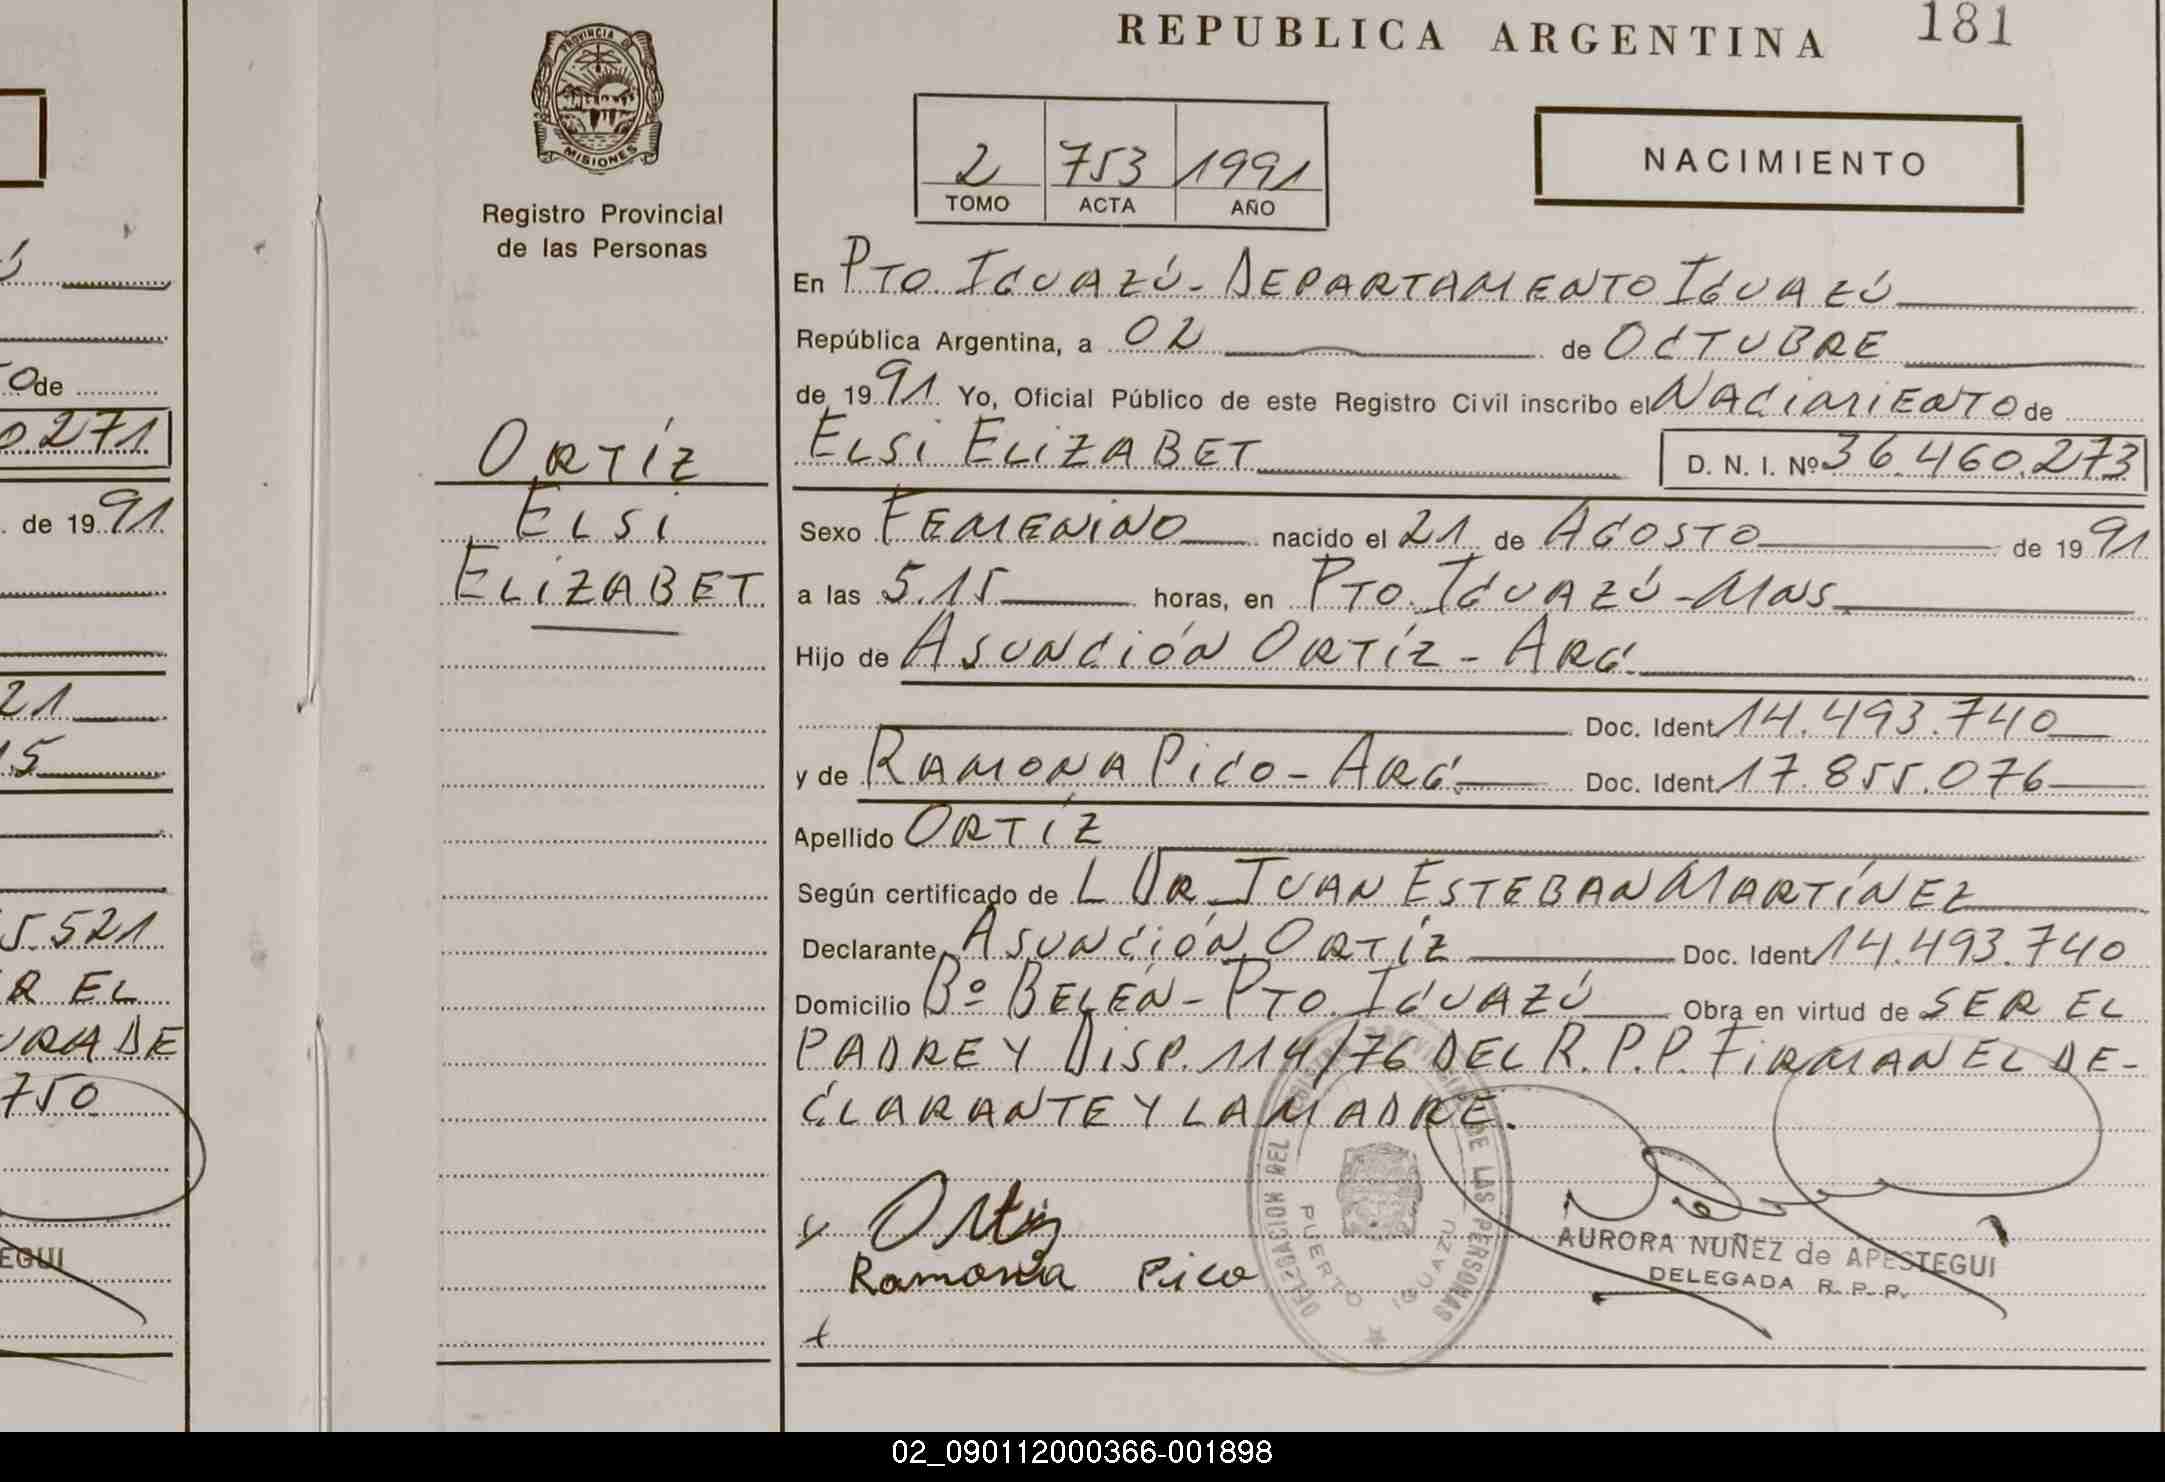 REPUBLICA ARGENTINA 181
PROVINCIA DE
MISIONES
Registro Provincial
de las Personas
ORTÍZ
ELSI
ELIZABET
2 753 1991
TOMO ACTA AÑO
NACIMIENTO
En PTO. IGUAZÚ - DEPARTAMENTO IGUAZÚ
República Argentina, a 02 de OCTUBRE
de 1991 Yo, Oficial Público de este Registro Civil inscribo el NACIMIENTO de
ELSI ELIZABET D. N. I. Nº 36.460.273
Sexo FEMENINO nacido el 21 de AGOSTO de 1991
a las 5.15 horas, en PTO. IGUAZÚ - MNS.
Hijo de ASUNCIÓN ORTÍZ - ARG.
Doc. Ident 14.493.740
y de RAMONA PICO - ARG. Doc. Ident 17.855.076
Apellido ORTÍZ
Según certificado de L DR. JUAN ESTEBAN MARTÍNEZ
Declarante ASUNCIÓN ORTÍZ Doc. Ident 14.493.740
Domicilio Bº BELÉN - PTO. IGUAZÚ Obra en virtud de SER EL
PADRE Y DISP. 114/76 DEL R.P.P. FIRMAN EL DE-
CLARANTE Y LA MADRE.
Ortiz
Ramona Pico
DELEGACION DEL REGISTRO PROVINCIAL DE LAS PERSONAS
PUERTO IGUAZU
AURORA NUÑEZ de APESTEGUI
DELEGADA R. P. P.
0.271
de 1991
21
.15
5.521
R EL
URA DE
750
EGUI
02_090112000366-001898